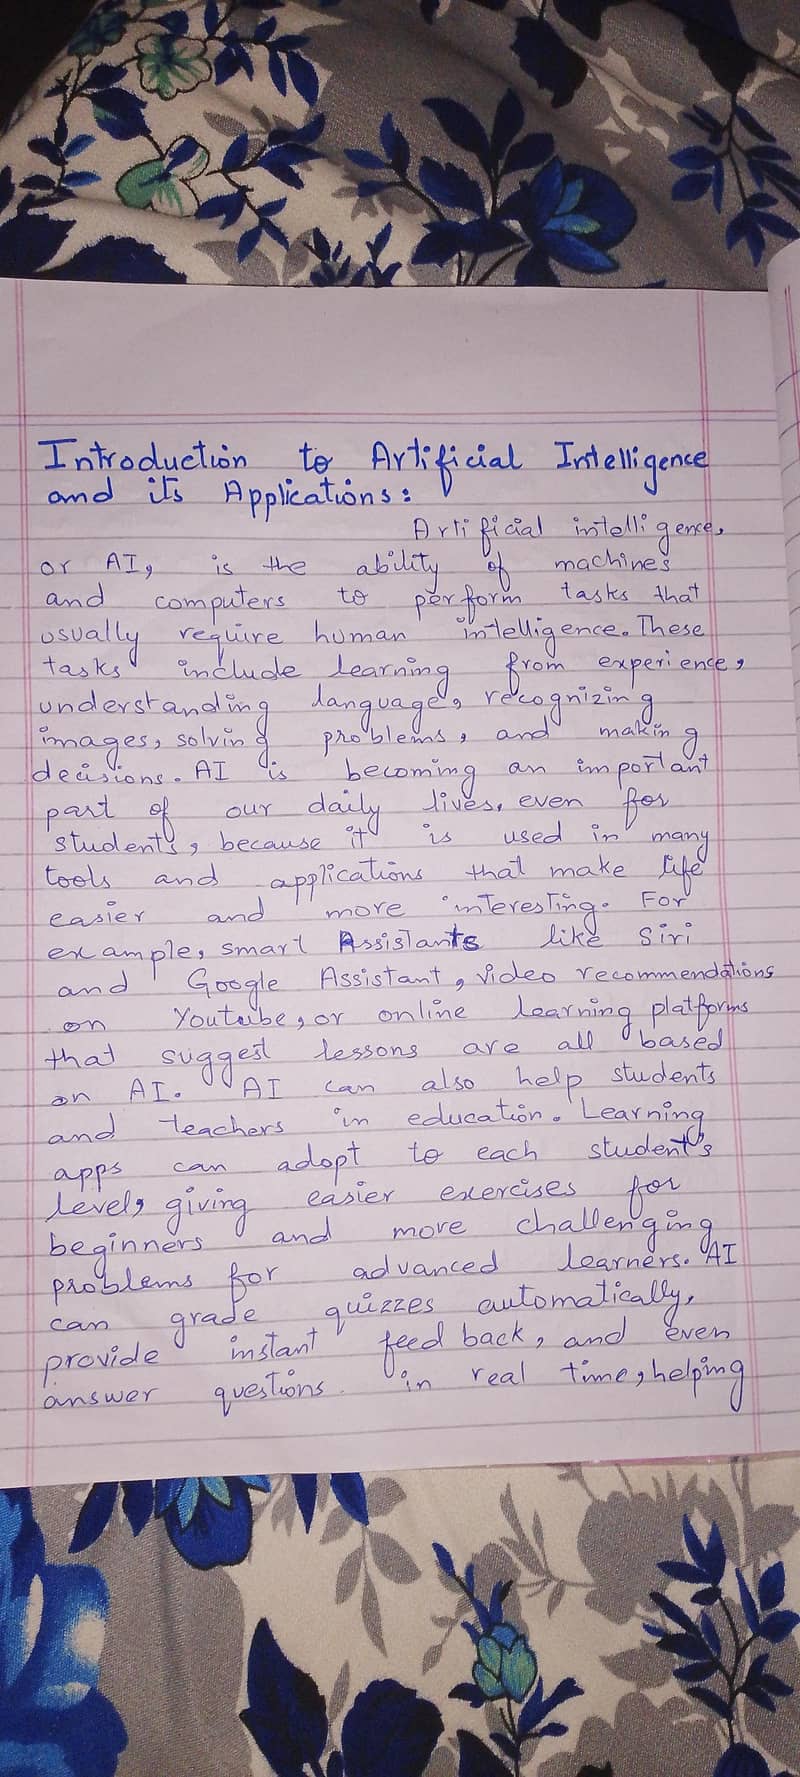 Introduction to Artificial Intelligence
and its Applications:
Artificial intelligence,
or AI, is the ability of machines
and computers to perform tasks that
usually require human intelligence. These
tasks include learning from experience,
understanding language, recognizing
images, solving problems, and making
decisions. AI is becoming an important
part of our daily lives, even for
students, because it is used in many
tools and applications that make life
easier and more interesting. For
example, smart Assistants like Siri
and Google Assistant, video recommendations
on Youtube, or online learning platforms
that suggest lessons are all based
on AI. AI can also help students
and teachers in education. Learning
apps can adopt to each student's
level, giving easier exercises for
beginners and more challenging
problems for advanced learners. AI
can grade quizzes automatically,
provide instant feed back, and even
answer questions in real time, helping